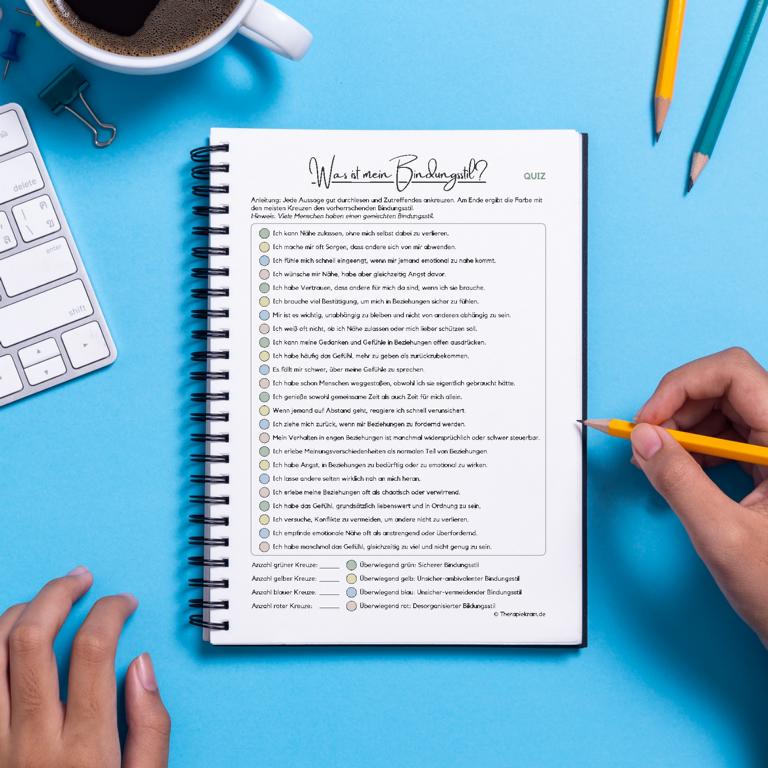 delete
enter
shift
Was ist mein Bindungsstil?
QUIZ
Anleitung: Jede Aussage gut durchlesen und Zutreffendes ankreuzen. Am Ende ergibt die Farbe mit
den meisten Kreuzen den vorherrschenden Bindungsstil.
Hinweis: Viele Menschen haben einen gemischten Bindungsstil.
Ich kann Nähe zulassen, ohne mich selbst dabei zu verlieren.
Ich mache mir oft Sorgen, dass andere sich von mir abwenden.
Ich fühle mich schnell eingeengt, wenn mir jemand emotional zu nahe kommt.
Ich wünsche mir Nähe, habe aber gleichzeitig Angst davor.
Ich habe Vertrauen, dass andere für mich da sind, wenn ich sie brauche.
Ich brauche viel Bestätigung, um mich in Beziehungen sicher zu fühlen.
Mir ist es wichtig, unabhängig zu bleiben und nicht von anderen abhängig zu sein.
Ich weiß oft nicht, ob ich Nähe zulassen oder mich lieber schützen soll.
Ich kann meine Gedanken und Gefühle in Beziehungen offen ausdrücken.
Ich habe häufig das Gefühl, mehr zu geben als zurückzubekommen.
Es fällt mir schwer, über meine Gefühle zu sprechen.
Ich habe schon Menschen weggestoßen, obwohl ich sie eigentlich gebraucht hätte.
Ich genieße sowohl gemeinsame Zeit als auch Zeit für mich allein.
Wenn jemand auf Abstand geht, reagiere ich schnell verunsichert.
Ich ziehe mich zurück, wenn mir Beziehungen zu fordernd werden.
Mein Verhalten in engen Beziehungen ist manchmal widersprüchlich oder schwer steuerbar.
Ich erlebe Meinungsverschiedenheiten als normalen Teil von Beziehungen.
Ich habe Angst, in Beziehungen zu bedürftig oder zu emotional zu wirken.
Ich lasse andere selten wirklich nah an mich heran.
Ich erlebe meine Beziehungen oft als chaotisch oder verwirrend.
Ich habe das Gefühl, grundsätzlich liebenswert und in Ordnung zu sein.
Ich versuche, Konflikte zu vermeiden, um andere nicht zu verlieren.
Ich empfinde emotionale Nähe oft als anstrengend oder überfordernd.
Ich habe manchmal das Gefühl, gleichzeitig zu viel und nicht genug zu sein.
Anzahl grüner Kreuze: ____ Überwiegend grün: Sicherer Bindungsstil
Anzahl gelber Kreuze: ____ Überwiegend gelb: Unsicher-ambivalenter Bindungsstil
Anzahl blauer Kreuze: ____ Überwiegend blau: Unsicher-vermeidender Bindungsstil
Anzahl roter Kreuze: ____ Überwiegend rot: Desorganisierter Bildungsstil
© Therapiekram.de